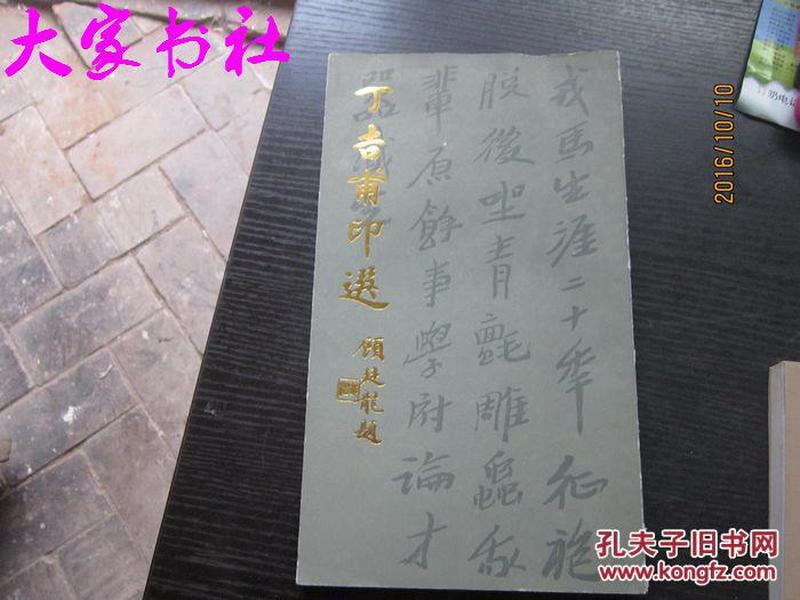 大家书社
丁吉甫印選
顧廷龍題
戎馬生涯二十年征袍
脫後坐青氈雕蟲我
輩原餘事學尉論才
器識
2016/10/10
奶电话
孔夫子旧书网
www.kongfz.com